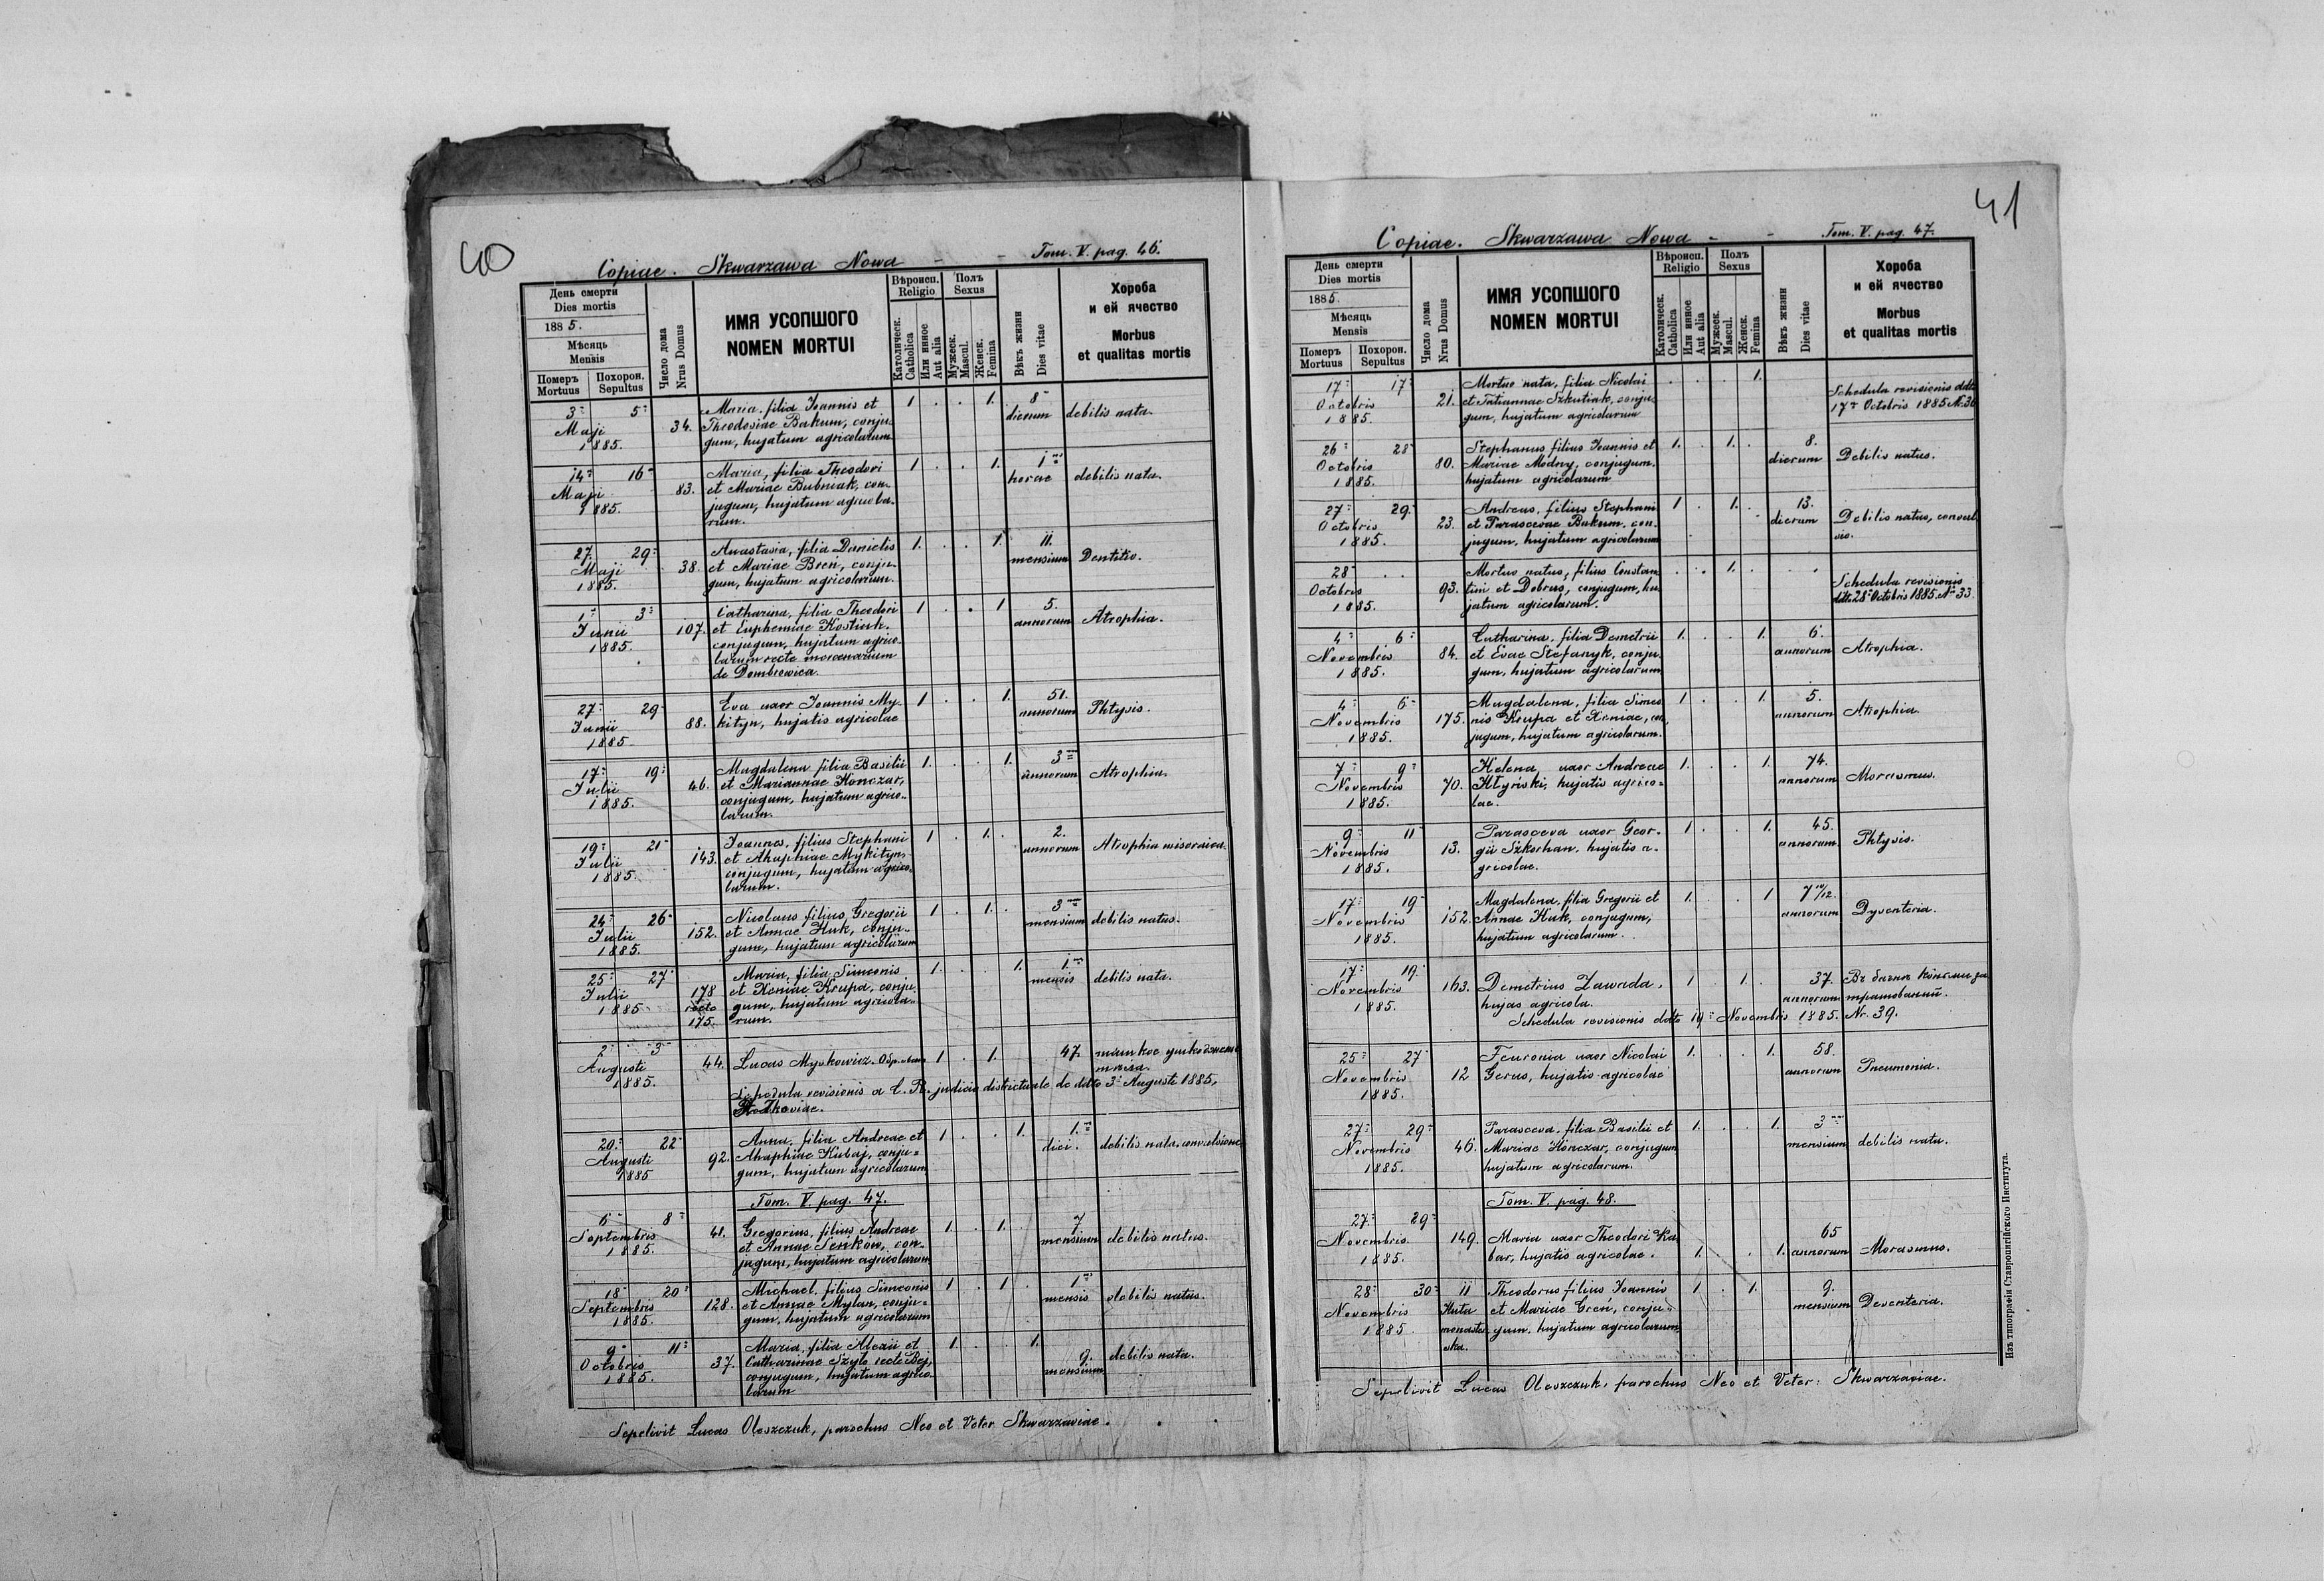 40
Copiae. Skwarzawa Nowa - - Tom. V. pag. 46.
День смерти
Dies mortis
1885.
Мѣсяць
Mensis
Померъ Mortuus
Похорон. Sepultus
Число дома
Nrus Domus
ИМЯ УСОПШОГО
NOMEN MORTUI
Вѣроисп.
Religio
Католическ.
Catholica
Или инное
Aut alia
Полъ
Sexus
Мужеск.
Mascul.
Женск.
Femina
Вѣкъ жизни
Dies vitae
Хороба
и ей ячество
Morbus
et qualitas mortis
3 5 Maria, filia Joannis et 1 . . 1. 8
Maji 34. Theodosiae Bakum, conju- dierum debilis nata.
1885. gum, hujatum agricolarum
14 16 Maria, filia Theodori 1 . . 1. 1
Maji 83. et Mariae Bubniak, con- horae debilis nata.
1885. jugum, hujatum agricola-
rum.
27. 29 Anastasia, filia Danielis 1. . . 1. 11.
Maji 38. et Mariae Bren, conju- mensium Dentitio.
1885. gum, hujatum agricolarum.
1 3 Catharina, filia Theodori 1 . . 1 5.
Junii 107. et Euphemiae Kostiuk. annorum Atrophia.
1885. conjugum, hujatum agrico-
larum recte mercenarium
de Dombrowica.
27 29 Eva uxor Joannis My- 1 . . 1. 51.
Junii 88. kityn, hujatis agricolae annorum Phtysis.
1885
17 19 Magdalena filia Basilii 1. . . 1. 3
Julii 46. et Mariannae Konczar, annorum Atrophia.
1885. conjugum, hujatum agrico-
larum.
19 21 Joannes, filius Stephani 1 . 1. . 2.
Julii 143. et Ahaphiae Mykityn, annorum Atrophia miseraica.
1885. conjugum, hujatum agrico-
larum.
24 26 Nicolaus filius Gregorii 1 . 1. . 3
Julii 152. et Annae Huk, conju- mensium debilis natus.
1885. gum, hujatum agricolarum
25 27 Maria, filia Simeonis 1. . . 1. 1
Julii 178 et Xeniae Krupa, conju- mensis debilis nata.
1885 recto gum, hujatum agricola-
175. rum.
2 3 47.
Augusti 44. Lucas Myskowicz. 1 . 1.
1885. Schedula revisionis a C. R. judicio districtuale de ddto 3 Augusti 1885,
20. 22 Anna, filia Andreae et 1 . . 1. 1.
Augusti 92. Ahaphiae Kubaj, conju- diei. debilis nata, convulsione
1885 gum, hujatum agricolarum
Tom. V. pag. 47.
6 8 Gregorius, filius Andreae 1. . 1. . 7
Septembris 41. et Annae Senkow, con- mensium debilis natus.
1885. jugum, hujatum agricolarum
18 20 Michael, filius Simeonis 1 . 1 . 1
Septembris 128. et Annae Mylan, conju- mensis debilis natus.
1885. gum, hujatum agricolarum
9 11 Maria, filia Alexii et 1. . . 1. 9.
Octobris 37. Catharinae Szylo recte Bej, mensium debilis nata.
1885. conjugum, hujatum agrico-
larum
Sepelivit Lucas Oleszczuk, parochus Neo et Veter Skwarzaviae.
41
Copiae. Skwarzawa Nowa - - Tom. V. pag. 47.
День смерти
Dies mortis
1885.
Мѣсяць
Mensis
Померъ Mortuus
Похорон. Sepultus
Число дома
Nrus Domus
ИМЯ УСОПШОГО
NOMEN MORTUI
Вѣроисп.
Religio
Католическ.
Catholica
Или инное
Aut alia
Полъ
Sexus
Мужеск.
Mascul.
Женск.
Femina
Вѣкъ жизни
Dies vitae
Хороба
и ей ячество
Morbus
et qualitas mortis
17 17 Mortuo nata, filia Nicolai . . . 1. Schedula revisionis ddto
Octobris 21. et Tatiannae Szkutiak, conju- 17 Octobris 1885 N. 36
1885. gum, hujatum agricolarum
26 28 Stephanus filius Joannis et 1. . 1. . 8.
Octobris 80. Mariae Modny, conjugum. dierum Debilis natus.
1885. hujatum agricolarum
27 29 Andreas, filius Stephani 1 . 1. . 13.
Octobris 23. et Parascevae Bukum, con- dierum Debilis natus, convul
1885. jugum, hujatum agricolarum sio.
28 . . Mortuo natus, filius Constan . . 1. . .
Octobris 93. tini et Dobrus, conjugum, hu Schedula revisionis
1885. jatum agricolarum. ddto 28 Octobris 1885. N 33.
4 6 Catharina, filia Demetrii 1. . . 1. 6.
Novembris 84. et Evae Stefanyk, conju- annorum Atrophia.
1885. gum, hujatum agricolarum
4 6 Magdalena, filia Simeo 1 . . 1. 5.
Novembris 175. nis Krupa et Xeniae, con annorum Atrophia.
1885. jugum, hujatum agricolarum.
7 9 Helena, uxor Andreae 1. . . 1. 74.
Novembris 70. Hlynski, hujatis agrico- annorum Morasmus.
1885. lae.
9 11 Parasceva uxor Geor- 1. . . 1. 45.
Novembris 13. gii Szkorhan, hujatis a- annorum Phtysis.
1885. gricolae.
17 19 Magdalena, filia Gregorii et 1. . . 1 7 10/12.
Novembris 152. Annae Huk, conjugum, annorum Dysenteria.
1885. hujatum agricolarum.
17 19. 37.
Novembris 163. Demetrius Zawada, 1 . 1. . annorum
1885. hujas agricola.
Schedula revisionis ddto 19 Novembris 1885. Nr. 39.
25 27 Feuronia uxor Nicolai 1. . . 1. 58.
Novembris 12 Gerus, hujatis agricolae annorum Pneumonia.
1885.
27 29 Parasceva, filia Basilii et 1. . . 1. 3
Novembris 46. Mariae Konczar, conjugum mensium debilis nata.
1885. hujatum agricolarum.
Tom. V. pag. 48.
27. 29 65
Novembris 149. Maria uxor Theodori Ka- 1. . . 1. annorum Morasmus.
1885. bar, hujatis agricolae.
28 30 11 Theodorus filius, Joannis 1 . 1. 9.
Novembris Huta et Mariae Gren, conju- mensium Desenteria.
1885 monaster- gum, hujatum agricolarum,
ska.
Sepelivit Lucas Oleszczuk, parochus Neo et Veter: Skwarzaviae.
Изъ типографіи Ставропигійского Института.